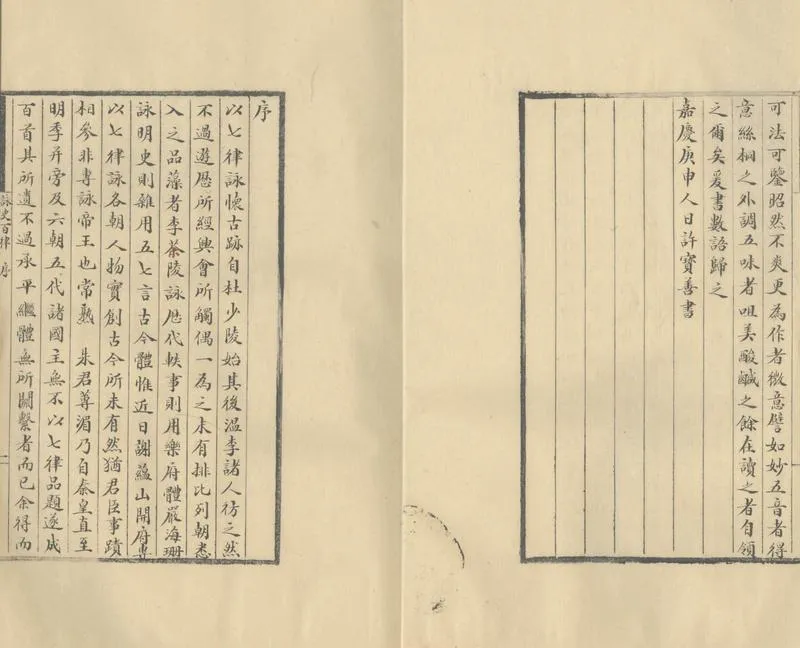 可法可鑒昭然不爽更為作者微意譬如妙五音者得
意絲桐之外調五味者咀美酸鹹之餘在讀之者自領
之爾矣爰書數語歸之
嘉慶庚申人日許寶善書
序
以七律詠懷古跡自杜少陵始其後温李諸人彷之然
不過遊歷所經興會所觸偶一為之未有排比列朝悉
入之品藻者李茶陵詠歷代軼事則用樂府體嚴海珊
詠明史則雜用五七言古今體惟近日謝蘊山開府專
以七律詠各朝人物實創古今所未有然猶君臣事蹟
相參非專詠帝王也常熟 朱君尊湄乃自秦皇直至
明季并旁及六朝五代諸國主無不以七律品題遂成
百首其所遺不過承平繼體無所關繫者而已余得而
詠史百律 序 一